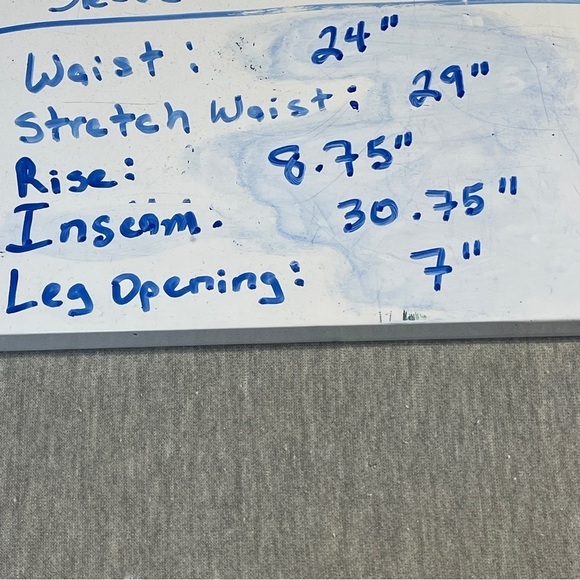 Waist: 24"
Stretch Waist: 29"
Rise: 8.75"
Inseam. 30.75"
Leg Opening: 7"